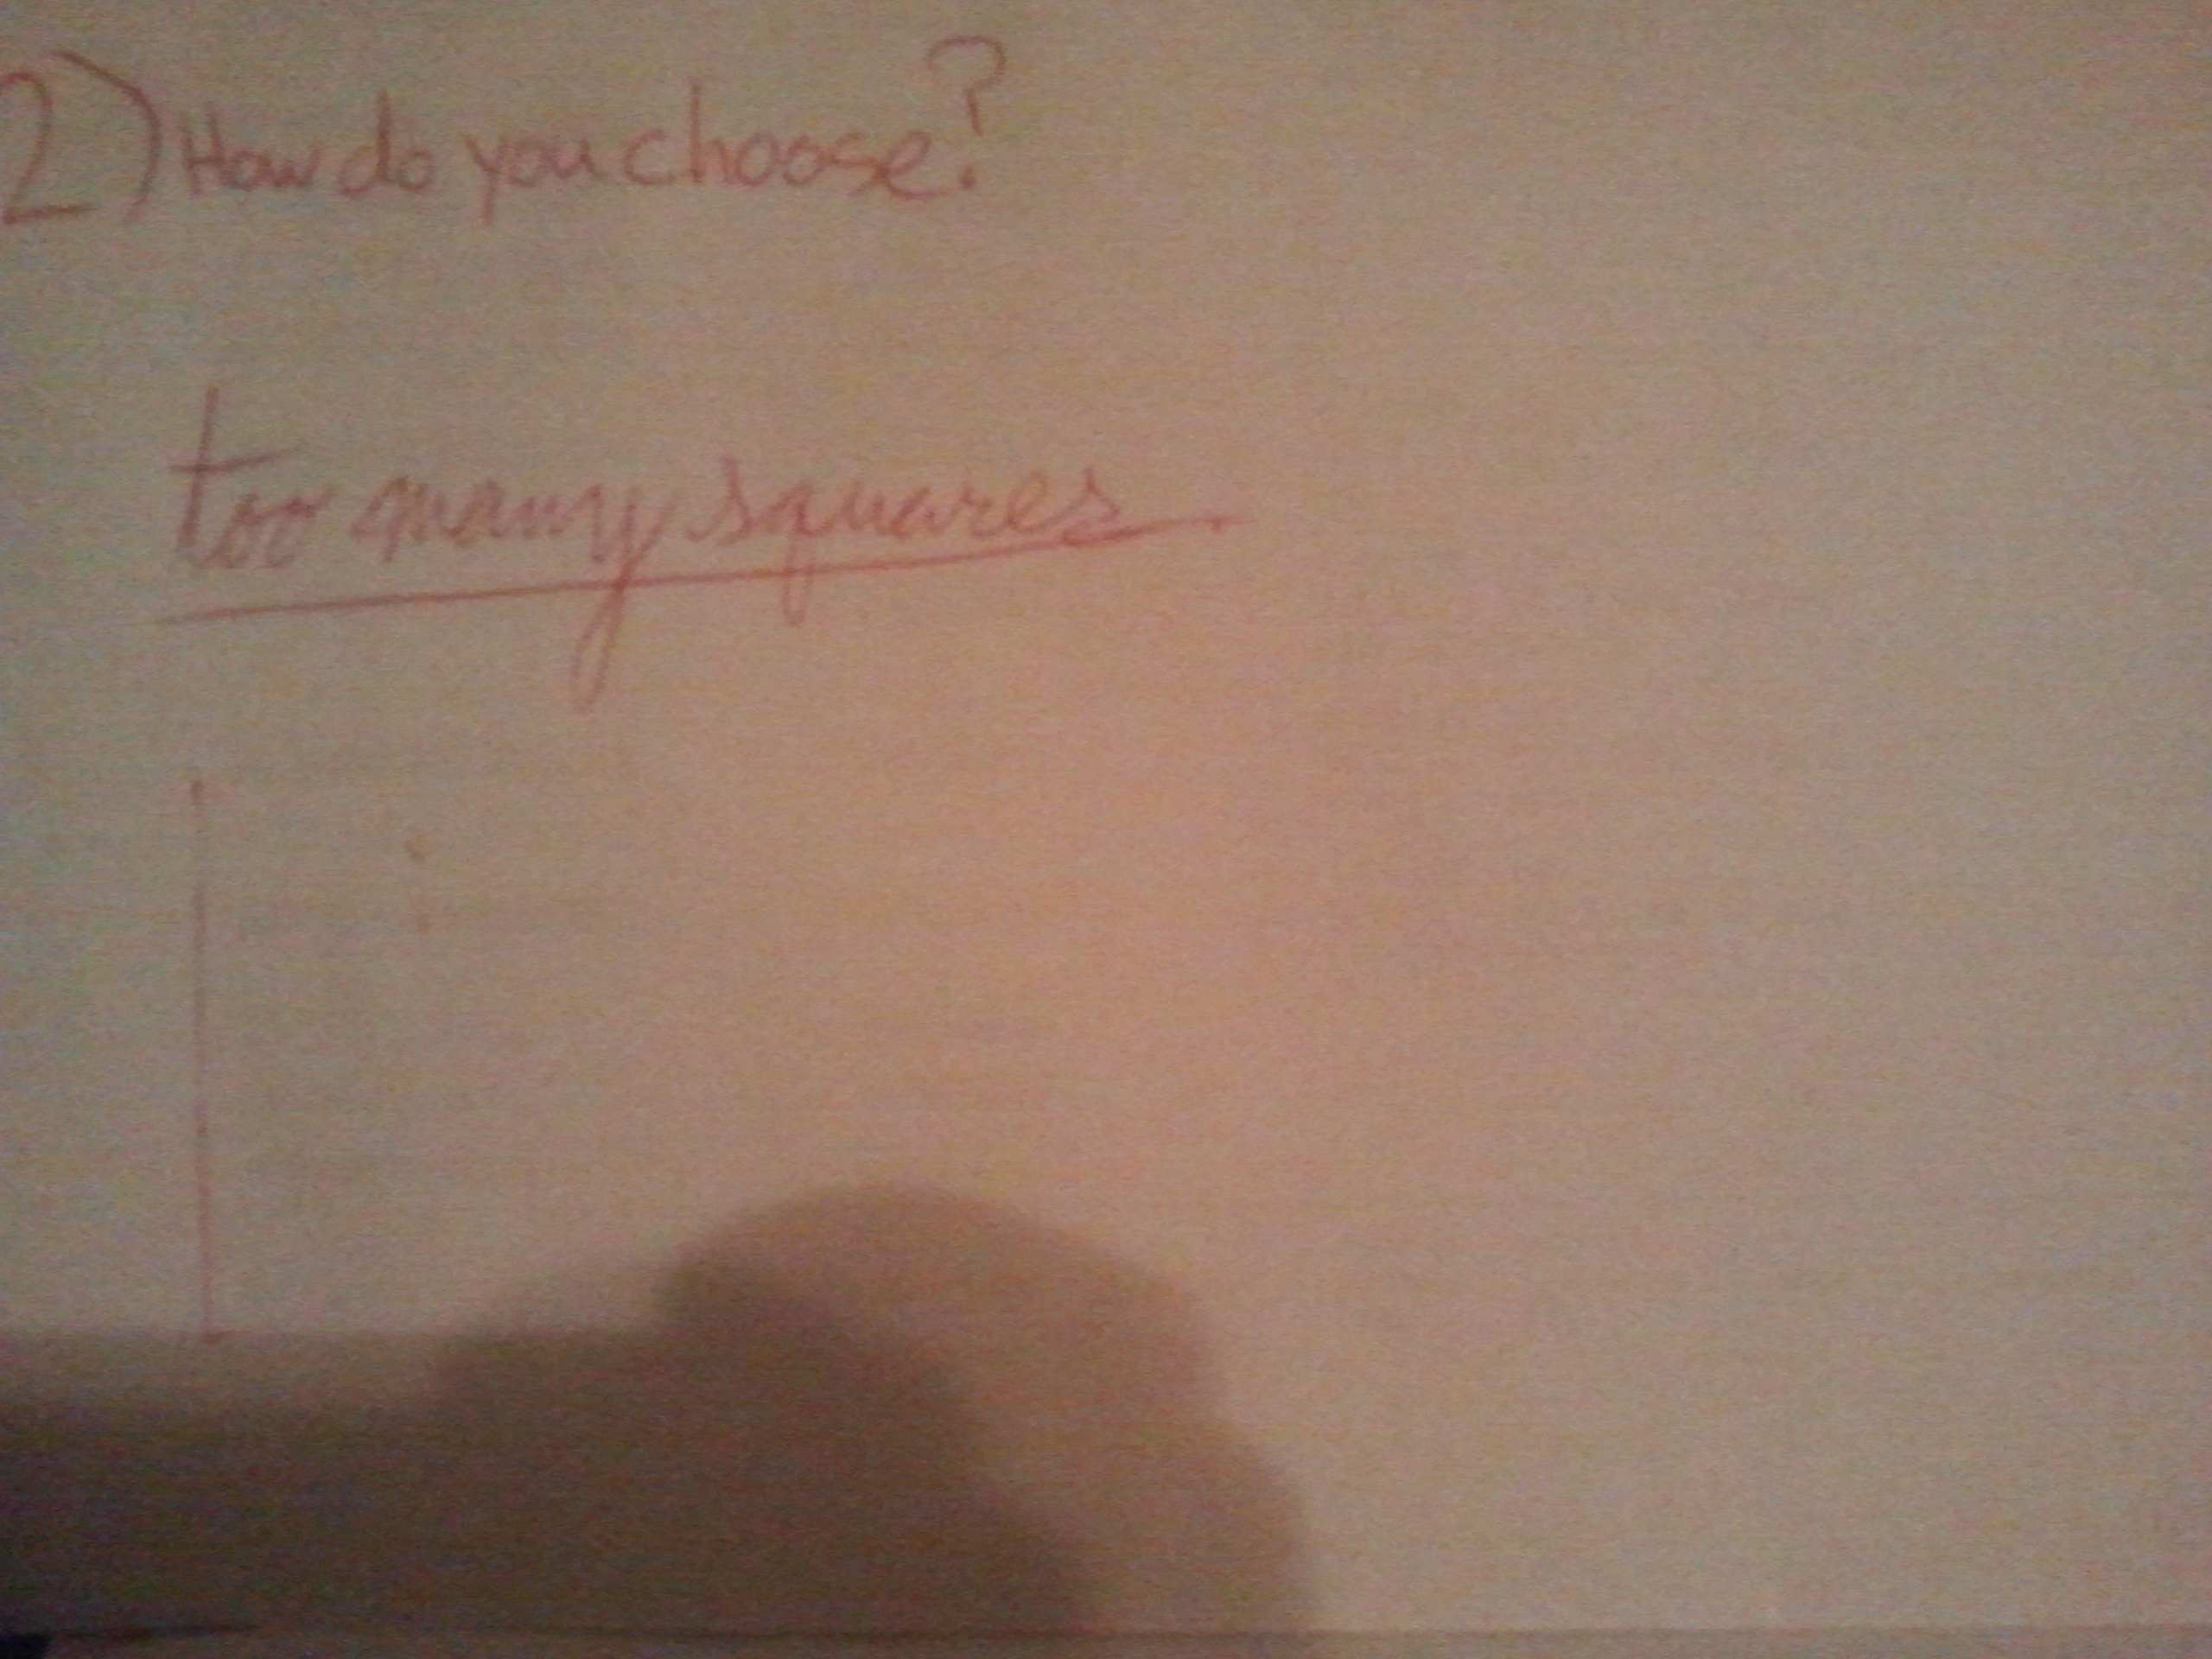 2) How do you choose?
too many squares.